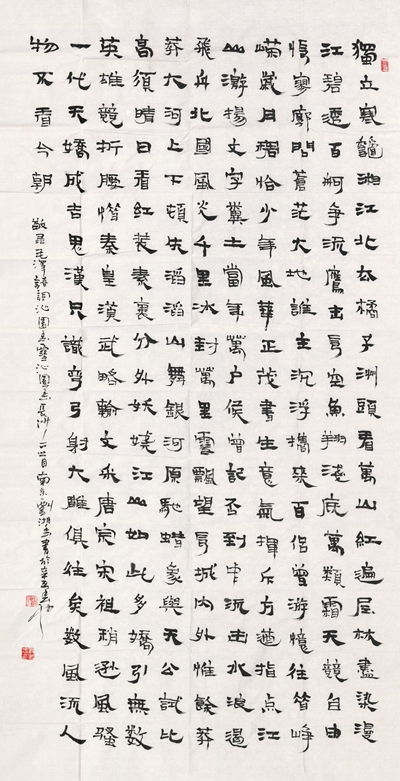 獨立寒龝湘江北去橘子洲頭看萬山紅遍層林盡染漫
江碧透百舸爭流鷹击長空魚翔淺底萬類霜天競自由
悵寥廓問蒼茫大地誰主沉浮攜來百侶曾游憶往昔崢
嶸歲月稠恰少年風華正茂書生意氣揮斥方遒指点江
山激揚文字糞土當年萬户侯曾記否到中流击水浪遏
飛舟北國風光千里冰封萬里雪飄望長城內外惟餘莽
莽大河上下頓失滔滔山舞銀蛇原馳蜡象與天公試比
高須晴日看紅裝素裹分外妖嬈江山如此多嬌引無數
英雄競折腰惜秦皇漢武略輸文采唐宗宋祖稍遜風騷
一代天嬌成吉思漢只識彎弓射大雕俱往矣数風流人
物还看今朝
敬录毛澤東詩詞沁園春雪沁園春長沙 南京劉湖 書於辛